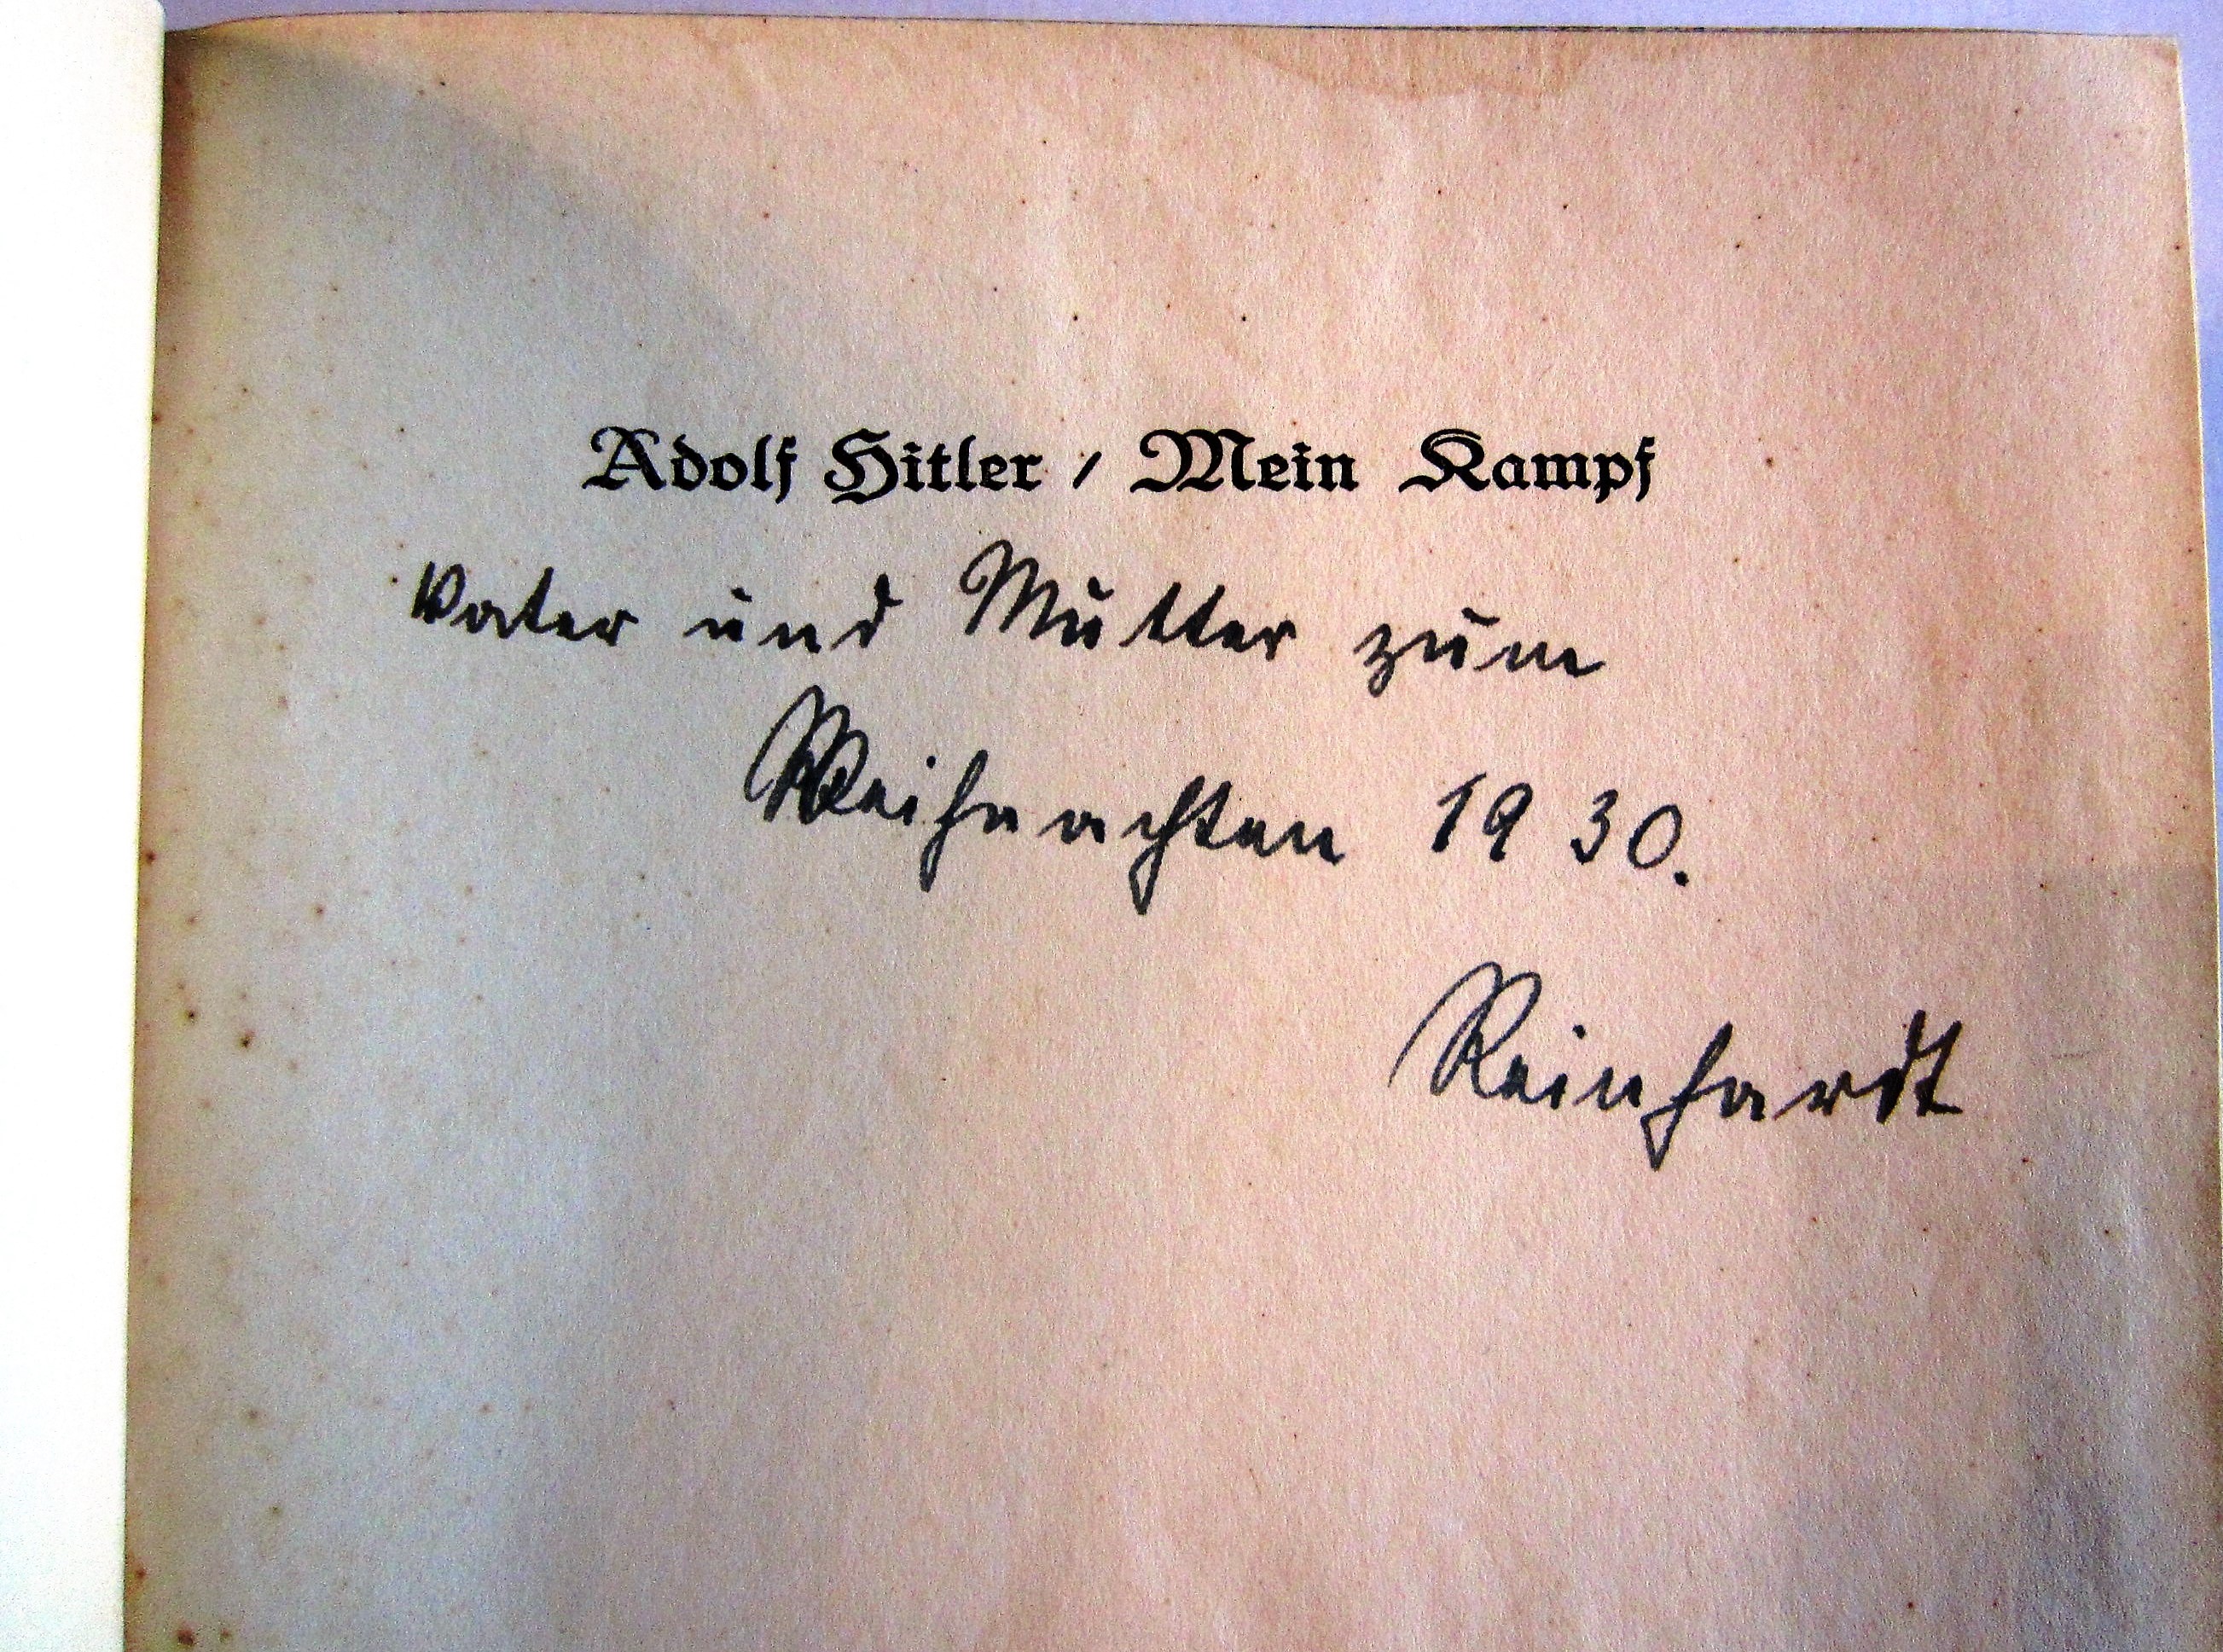 Adolf Hitler / Mein Kampf
Vater und Mutter zum
Weihnachten 1930.
Reinhardt